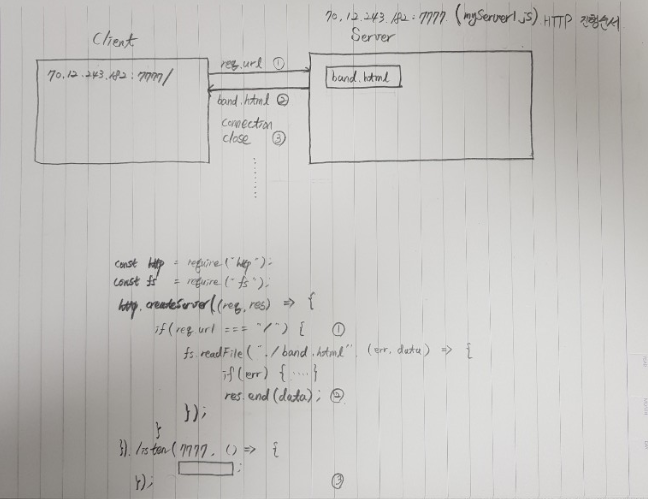 70.12.243.182:7777 (myServer1.js) HTTP 진행순서
Client
Server
70.12.243.182:7777/
req.url ①
band.html
band.html ②
connection
close ③
const http = require("http");
const fs = require("fs");
http.createServer((req, res) => {
if(req.url === "/") { ①
fs.readFile("./band.html", (err, data) => {
if(err) { ....}
res.end(data); ②
});
}
}).listen(7777, () => {
;
}); ③